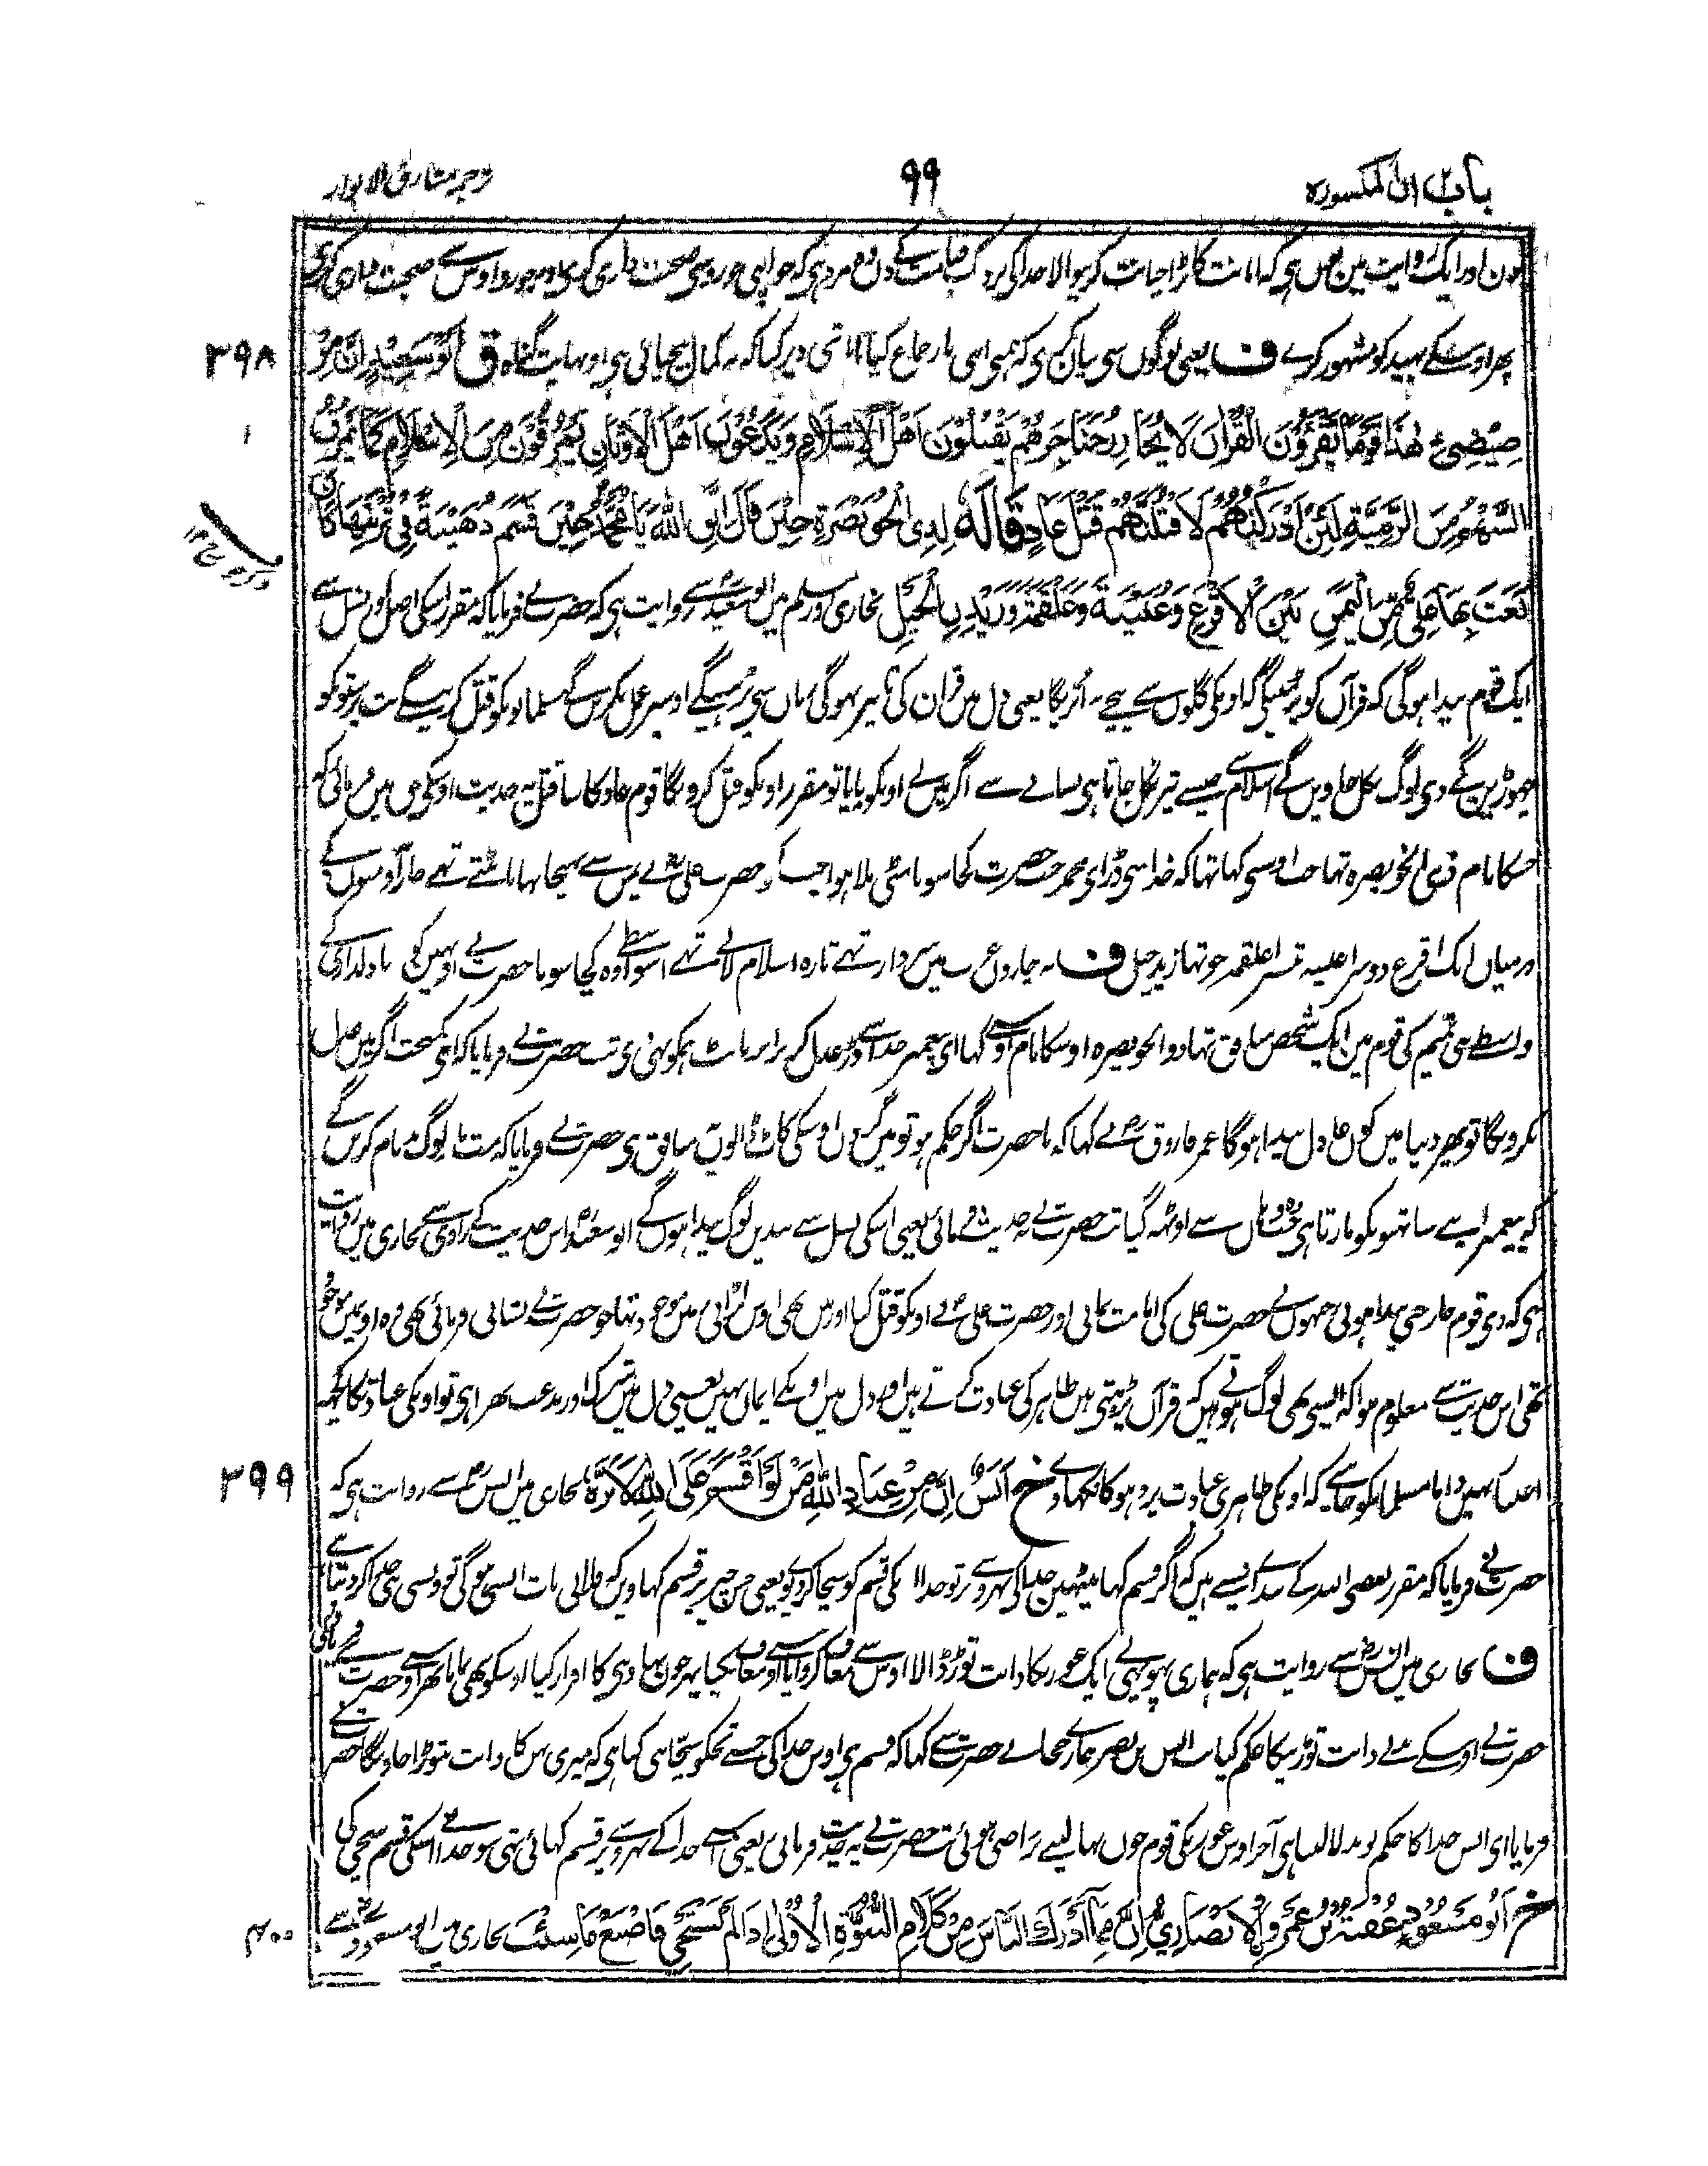 باب ان المکسورہ
۹۹
ترجمہ مشارق الانوار
اور ایک روایت مین یوں ہی کہ امانت کا بڑا خیانت کرنیوالا خدا کی نزدیک قیامت کے دن وہ مرد ہی کہ جو اپنی جورو سی صحبت داری کری اور جورو اوس سے صحبت داری کری
پھر اوسکے بھید کو مشہور کرے ف یعنی لوگوں سی بیان کری کہ یہ کمال بیحیائی ہی اور نہایت گناہ ق ابو سعید ان من
۳۹۸
ضِئْضِئِ هٰذَا قَوْمًا يَقْرَؤُنَ الْقُرْآنَ لَا يُجَاوِزُ حَنَاجِرَهُمْ يَقْتُلُوْنَ اَهْلَ الْاِسْلَامِ وَيَدَعُوْنَ اَهْلَ الْاَوْثَانِ يَمْرُقُوْنَ مِنَ الْاِسْلَامِ كَمَا يَمْرُقُ
السَّهْمُ مِنَ الرَّمِيَّةِ لَئِنْ اَدْرَكْتُهُمْ لَاَقْتُلَنَّهُمْ قَتْلَ عَادٍ قَالَهٗ لِذِى الْخُوَيْصِرَةِ حِيْنَ قَالَ اتَّقِ اللّٰهَ يَا مُحَمَّدُ حِيْنَ قَسَمَ ذُهَيْبَةً فِىْ تُرْبَتِهَا كَانَ
بَعَثَ بِهَا عَلِىٌّ مِّنَ الْيَمَنِ بَيْنَ الْاَقْرَعِ وَعُيَيْنَةَ وَعَلْقَمَةَ وَزَيْدِ الْخَيْلِ بخاری اور مسلم میں ابو سعید سے روایت ہی کہ حضرت نے فرمایا کہ مقرر اسکی اصل اور نسل سے
ایک قوم پیدا ہوگی کہ قرآن کو پڑھیگی اونکی گلوں سے نیچے نہ اتریگا یعنی دل میں قرآن کی تاثیر نہوگی زبان سی پڑھینگے اوسپر عمل نکرینگے مسلمانونکو قتل کرینگے بت پرستونکو
چھوڑین گے وی لوگ نکل جاوینگے اسلام سے جیسے تیر نکل جاتا ہی نشانے سے اگر میں نے اونکو پایا تو مقرر اونکو قتل کرونگا قوم عاد کا سا قتل یہ حدیث اوسکی حق میں فرمائی کہ
جسکا نام ذی الخویصرہ تھا جب اوسنی کہا تھا کہ خدا سی ڈر ای محمد جب حضرت کچا سونا مٹی ملا ہوا جسکو حضرت علی نے یمن سے بھیجا تھا بانٹتے تھے چار آدمیوں کے
درمیان ایک اقرع دوسرا عیینہ تیسرا علقمہ چوتھا زید خیل ف یہ چاروں عرب میں سردار تھے تازہ اسلام لائے تھے اسواسطے وہ کچا سونا حضرت نے اونہین کو دیا دلداری کے
واسطے بنی تمیم کی قوم مین ایک شخص منافق تھا ذوالخویصرہ اوسکا نام اوسنے کہا ای پیغمبر خدا سے ڈر عدل کر برابر بانٹ ہمکو بھی دی تب حضرت نے فرمایا کہ ای کمبخت اگر میں عدل
نکرونگا تو پھر دنیا میں کون عادل پیدا ہوگا عمر فاروق نے کہا کہ یا حضرت اگر حکم ہو تو میں گردن اوسکی کاٹ ڈالوں یہ منافق ہی حضرت نے فرمایا کہ مت مار لوگ بدنام کرینگے
کہ پیغمبر اپنے ساتھیونکو مارتا ہی سے اوٹھ گیا تب حضرت نے یہ حدیث فرمائی یعنی اسکی نسل سے بیدین لوگ پیدا ہونگے ابو سعید اس حدیث کے راوی سے بخاری میں روایت
ہی کہ وی قوم خارجی پیدا ہوئی جنہوں نے حضرت علی کی امامت نمانی اور حضرت علی نے اونکو قتل کیا اور میں بھی اوس لڑائی میں موجود تھا جو حضرت نے نشانی فرمائی تھی وہ اونمیں موجود
تھی اس حدیث سے معلوم ہوا کہ ایسی بھی لوگ ہوتے ہیں کہ قرآن پڑھتی ہیں ظاہر کی عبادت کرتے ہیں اور دل میں اونکے ایمان نہیں یعنی دل میں شرک اور بدعت بھرا ہی تو اونکی عبادت کا کچھ
اعتبار نہیں دانا مسلمانکو چاہیے کہ اونکی ظاہری عبادت پر دھوکا نکھاوے خ اَنَسٌ اِنَّ مِنْ عِبَادِ اللّٰهِ مَنْ لَوْ اَقْسَمَ عَلَى اللّٰهِ لَاَبَرَّهٗ بخاری میں انس سے روایت ہی کہ
۳۹۹
حضرت نے فرمایا کہ مقرر بعضی اللہ کے بندے ایسے ہیں کہ اگر قسم کھا بیٹھین خدا کی بھروسے پر تو خدا اونکی قسم کو سچا کردیوے یعنی جس چیز پر قسم کھاوین کہ فلانی بات ایسی ہوگی تو ویسی ہی خدا کردیتا ہے
ف بخاری میں انس سے روایت ہی کہ ہماری پھوپھی نے ایک عورت کا دانت توڑ ڈالا اوس سے معاف کروایا اوسنے معاف نکیا پھر خون بہا دینے کا اقرار کیا اوسکو بھی نمانا پھر اوسنے حضرت سے فریاد کی
حضرت نے اوسکے بدلے دانت توڑنیکا حکم کیا تب انس بن نضر نے حضرت سے کہا کہ قسم ہی اوس خدا کی جسنے تمکو سچا نبی کیا ہی کہ میری بہن کا دانت نتوڑا جاویگا حضرت نے
فرمایا ای انس خدا کا حکم تو بدلا لینا ہی آخر اوس عورت کی قوم خون بہا لینے پر راضی ہوئی تب حضرت نے یہ حدیث فرمائی یعنی اسنے خدا کے بھروسے پر قسم کھائی تھی سو خدا نے اسکی قسم سچی کی
خ اَبُوْ مَسْعُوْدٍ عُقْبَةُ بْنُ عَمْرٍو الْاَنْصَارِيُّ اِنَّ مِمَّا اَدْرَكَ النَّاسَ مِنْ كَلَامِ النُّبُوَّةِ الْاُوْلٰى اِذَا لَمْ تَسْتَحْيِ فَاصْنَعْ مَا شِئْتَ بخاری میں ابو مسعود سے
۴۰۰